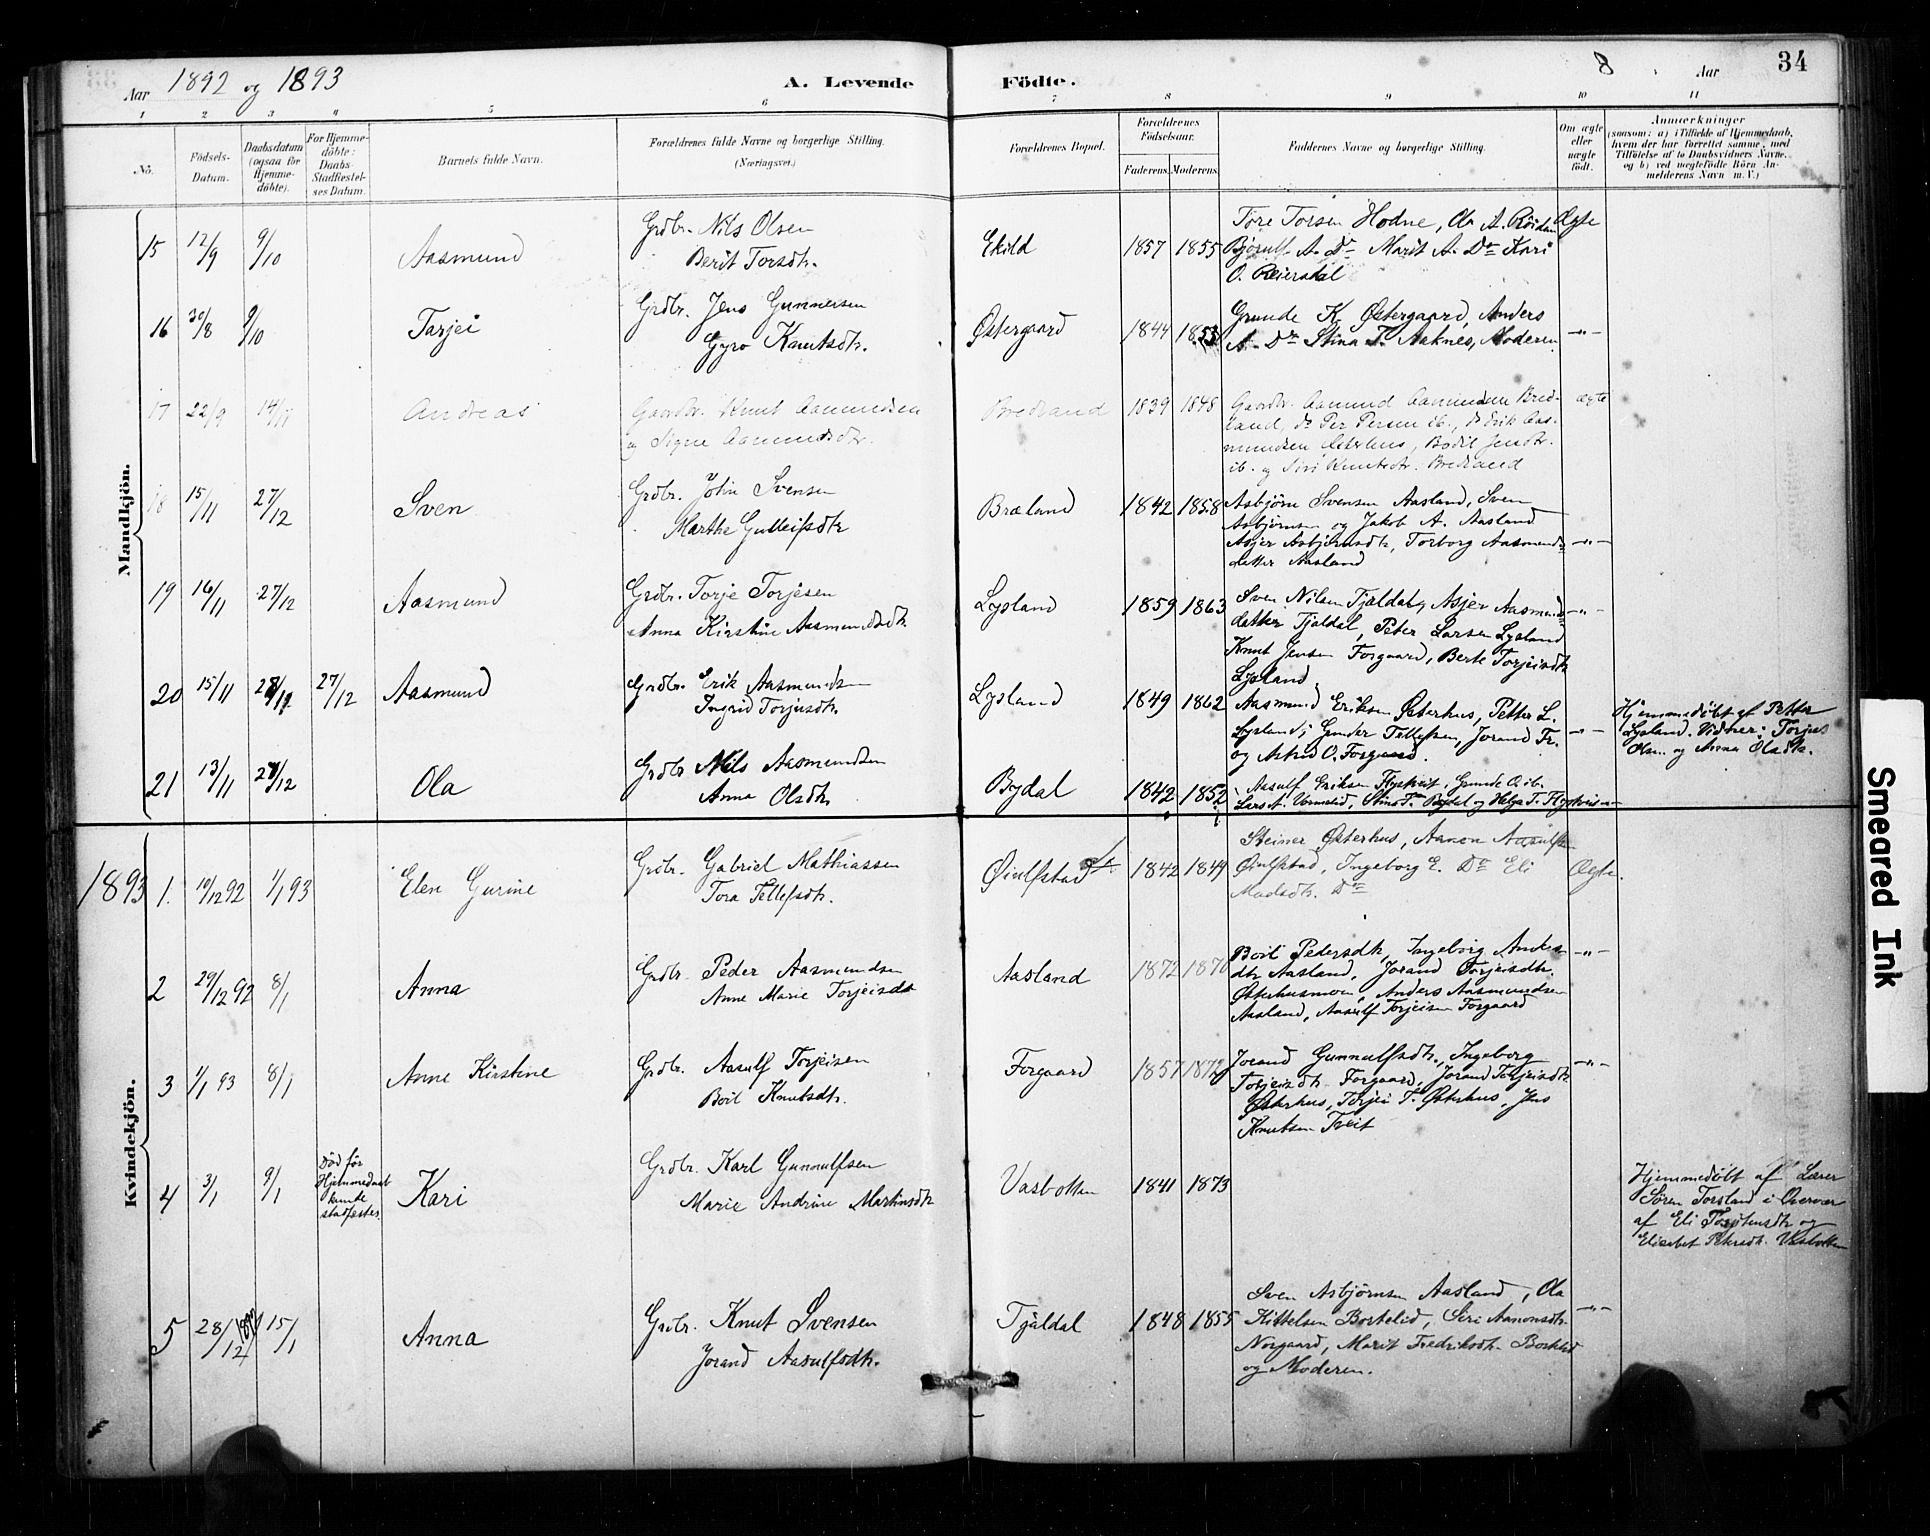 Aar 1892 og 1893 A. Levende Födte. 8 Aar 34
1 2 3 4 5 6 7 8 9 10 11
No.
Födsels-Datum.
Daabsdatum (ogsaa for Hjemme-döbte).
For Hjemme-döbte: Daabs-Stadfæstel-ses Datum.
Barnets fulde Navn.
Forældrenes fulde Navne og borgerlige Stilling.
(Næringsvei.)
Forældrenes Bopæl.
Forældrenes Födselsaar.
Faderens. Moderens.
Faddernes Navne og borgerlige Stilling.
Om ægte eller uægte födt.
Anmærkninger
(saasom: a) i Tilfælde af Hjemmedaab,
hvem der har forrettet samme, med
Tilföielse af to Daabsvidners Navne,
og b) ved uægtefödte Börn An-
melderens Navn m. V.)
Mandkjön.
15 12/9 9/10 Aasmund Grdbr. Nils Olsen
Berit Torsdtr. Ekild 1857 1855 Tore Torsen Hodne, Ola A. Röisdan Ægte
Bjørulf A. Do Marit A. Do Kari
O. Reiersdal
16 30/8 9/10 Tarjei Grdbr. Jens Gunnersen
Gyro Knutsdtr. Østergaard 1844 1853 Grunde K. Østergaard, Anders
A. Do Stina T. Aaknes, Moderen -"-
17 22/9 14/11 Andreas Gaardbr. Knut Aanundsen
og Signe Aamundsdtr. Bredland 1839 1848 Gaardbr. Aamund Aamundsen Bred- ægte
land, do Per Persen ib., do Erik Aas-
mundsen Østerhus, Bodil Jensdtr.
ib. og Siri Knutsdtr. Bredland
18 15/11 27/12 Sven Grdbr. John Svensen
Marthe Gulleifsdtr Bræland 1842 1858 Asbjörn Svensen Aasland, Sven
Asbjørnsen og Jakob A. Aasland
Asjer Asbjörnsdtr, Torborg Aasmunds- -"-
datter Aasland
19 16/11 27/12 Aasmund Grdbr. Torje Torjesen
Anna Kirstine Aasmundsdtr. Lysland 1859 1863 Sven Nilsen Tjaldal, Asjer Aasmunds- -"-
datter Tjaldal, Peter Larsen Lysland
Knut Jensen Forgaard, Berte Torjeisdtr
Lysland
20 15/11 28/11 27/12 Aasmund Grdbr. Erik Aasmundsen
Ingrid Torjusdtr. Lysland 1849 1862 Aasmund Eriksen Østerhus, Petter L.
Lysland, Gunder Tellefsen, Jorand Fr. -"-
og Astrid O. Forgaard.
Hjemmedöbt af Petter
Lysland. Vidner: Torjus
Olsen og Anna Olsdtr.
21 13/11 27/12 Ola Grdbr Nils Aasmundsen
Anna Olsdtr. Bydal 1842 1852 Aasulf Eriksen Flystveit, Grunde O. ib.
Lars A. Vormelid, Stina T. Bydal og Helga T. Flystveit -"-
Kvindekjön.
1893 1. 10/12 92 1/1 93 Elen Gurine Grdbr. Gabriel Mathiassen
Tora Tellefsdtr. Øiulfstad 1842 1849 Steiner Østerhus, Aanon Aasulfsen
Øiulfstad, Ingeborg E. Do Eli Ægte.
Madsdtr. Do
2 29/12 92 8/1 Anna Grdbr. Peder Aasmundsen
Anne Marie Torjeisdtr Aasland 1872 1870 Boil Pedersdtr, Ingeborg Anders- -"-
dtr Aasland, Jorand Torjeisdtr.
Østerhusmoen, Anders Aasmundsen
Aasland, Aasulf Torjeisen Forgaard
3 1/1 93 8/1 Anne Kirstine Grdbr. Aasulf Torjeisen
Boil Knutsdtr. Forgaard 1857 1872 Jorand Gunnulfsdtr., Ingeborg -"-
Torjeisdtr. Forgaard, Jorand Torjeisdtr
Østerhus, Torjei T. Østerhus, Jens
Knutsen Tveit
4 3/1 9/1 Död för
Hjemmedaab
kunde
stadfestes Kari Grdbr. Karl Gunnulfsen
Marie Andrine Martinsdtr Vasbotten 1841 1873
Hjemmedöbt af Lærer
Sören Torsland i Overvær
af Eli Torstensdtr og
Elisabet Petersdtr. Vasbotten
5 28/12 1892 15/1 Anna Grdbr. Knut Svensen
Jorand Aasulfsdtr. Tjaldal 1848 1855 Sven Asbjørnsen Aasland, Ola
Kittelsen Bortelid, Siri Aanonsdtr. -"-
Norgaard, Marit Fredriksdtr. Bortelid
og Moderen.
Smeared Ink